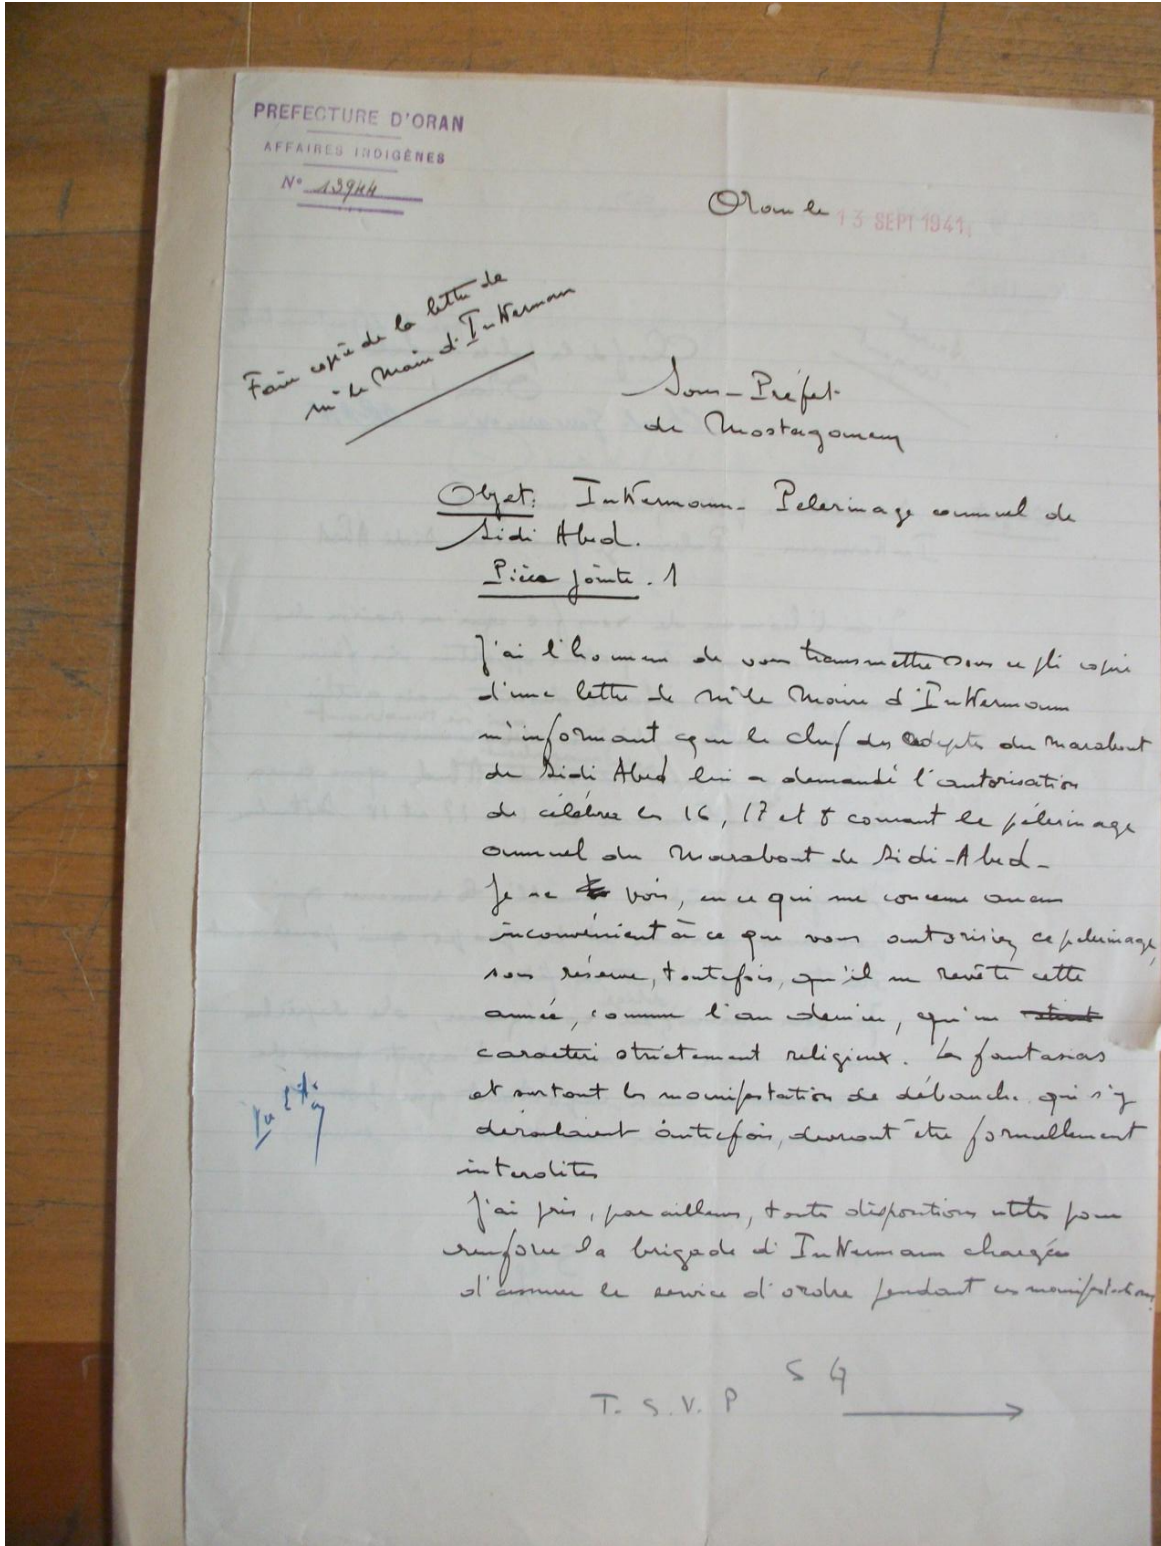 PREFECTURE D'ORAN
AFFAIRES INDIGÈNES
N° 13944
Oran le 13 SEPT 1941
Faire copie de la lettre de
M. le Maire d'InKermann
Sous-Préfet
de Mostaganem
Objet: InKermann - Pelerinage annuel de
Sidi Abed.
Pièce jointe. 1
J'ai l'honneur de vous transmettre sous ce pli copie
d'une lettre de M. le Maire d'InKermann
m'informant que le chef des adeptes du Marabout
de Sidi Abed lui a demandé l'autorisation
de célébrer les 16, 17 et courant le pélerinage
annuel du Marabout de Sidi-Abed-
Je ne vois, en ce qui me concerne aucun
inconvénient à ce que vous autorisiez ce pelerinage,
sous réserve, toutefois, qu'il ne revête cette
année, comme l'an dernier, qu'un
caractère strictement religieux. Les fantasias
et surtout les manifestation de débauche qui s'y
déroulaient autrefois, devront être formellement
interdites
J'ai pris, par ailleurs, toutes dispositions utiles pour
renforcer la brigade d'InKermann chargée
d'assurer le service d'ordre pendant ces manifestations.
S G
T. S. V. P